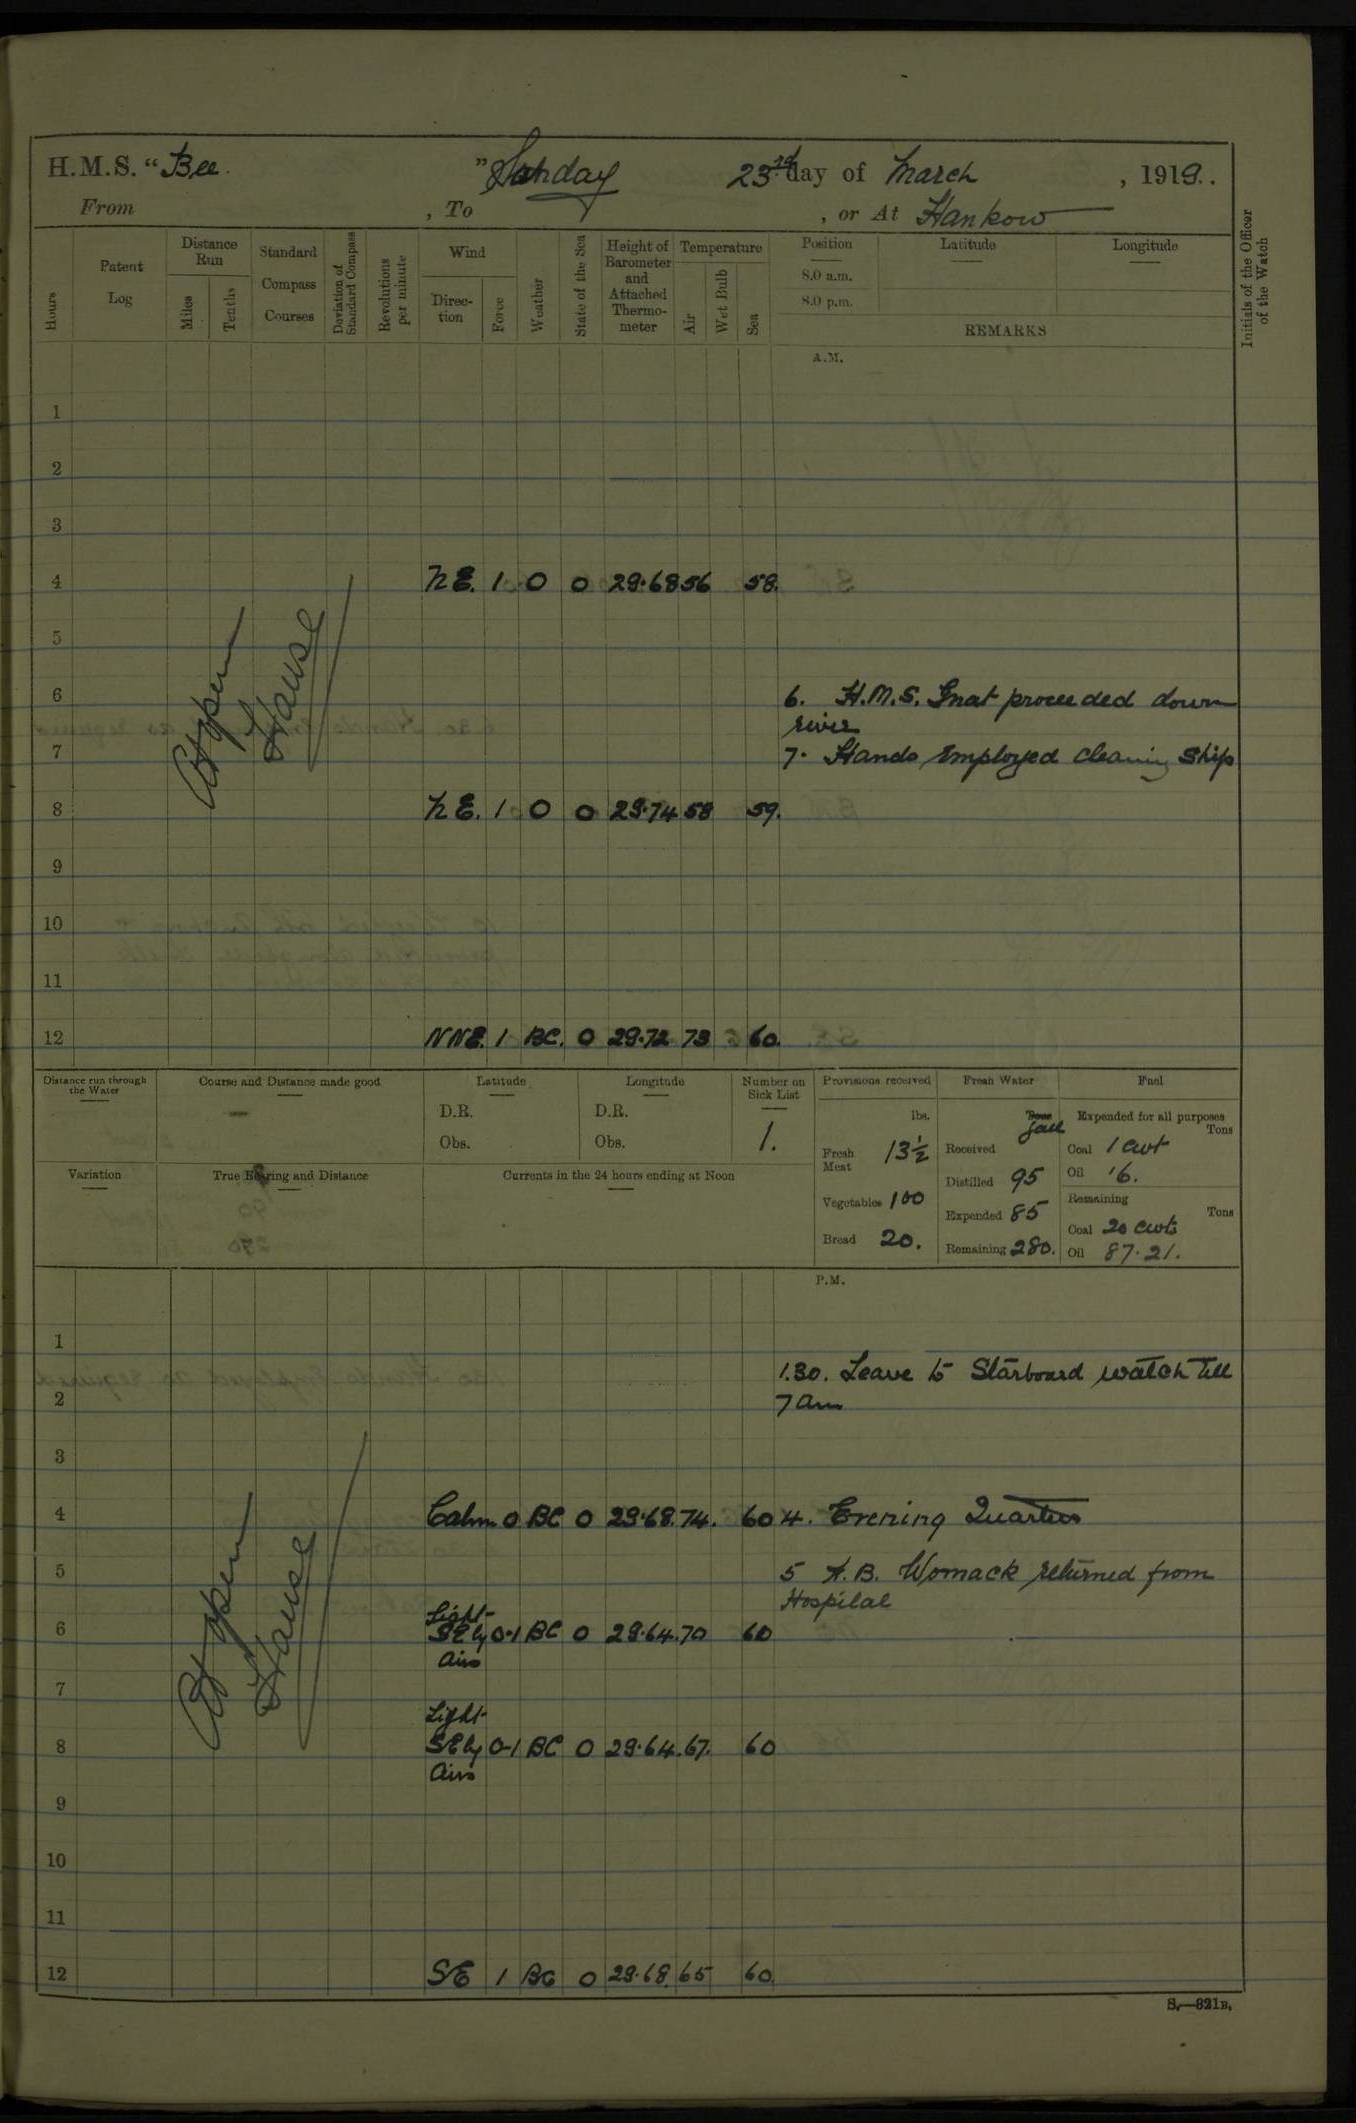 H.M.S. “Bee ” Sunday 23rd day of March , 1919.
From , To , or At Hankow
Hours
Patent Log
Distance Run
Miles
Tenths
Standard Compass Courses
Deviation of Standard Compass
Revolutions per minute
Wind
Direction
Force
Weather
State of the Sea
Height of Barometer and Attached Thermometer
Temperature
Air
Wet Bulb
Sea
Position
Latitude
Longitude
8.0 a.m.
8.0 p.m.
REMARKS
Initials of the Officer of the Watch
A.M.
1
2
3
4 NE. 1 O O 29.68 56 58.
5
6 6. H.M.S. Gnat proceeded down
river
7 7. Hands employed cleaning ship
8 NE. 1 O O 29.74 58 59.
9
10
11
12 NNE. 1 BC. O 29.72 73 60.
At open
Hause
Distance run through the Water
Course and Distance made good
—
Latitude
D.R.
Obs.
Longitude
D.R.
Obs.
Number on Sick List
1.
Provisions received
lbs.
Fresh Meat 13½
Vegetables 100
Bread 20.
Fresh Water
Tons
Gall
Received
Distilled 95
Expended 85
Remaining 280.
Fuel
Expended for all purposes
Tons
Coal 1 cwt
Oil '6.
Remaining
Tons
Coal 20 cwts
Oil 87.21.
Variation
True Bearing and Distance
Currents in the 24 hours ending at Noon
P.M.
1
1.30. Leave to Starboard watch till
2 7am
3
4 Calm 0 BC O 29.68. 74. 60 4. Evening Quarters
5 5 A.B. Womack returned from
Hospital
Light
6 SEly 0-1 BC O 29.64. 70 60
airs
7
Light
8 SEly 0-1 BC O 29.64. 67. 60
airs
9
10
11
12 SE 1 BC O 29.68. 65 60.
At open
Hause
S.—321B.